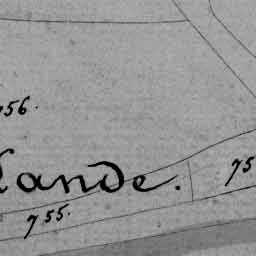 756.
Lande.
75
755.